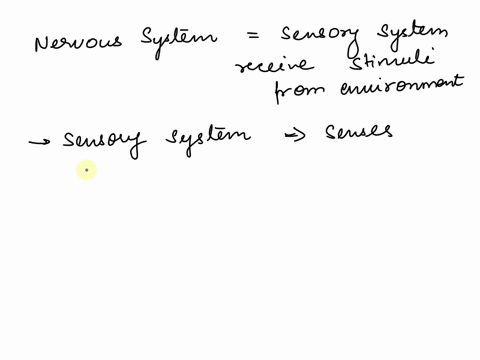 Nervous System = Sensory System
receive stimuli
from environment
→ Sensory System ⇒ Senses